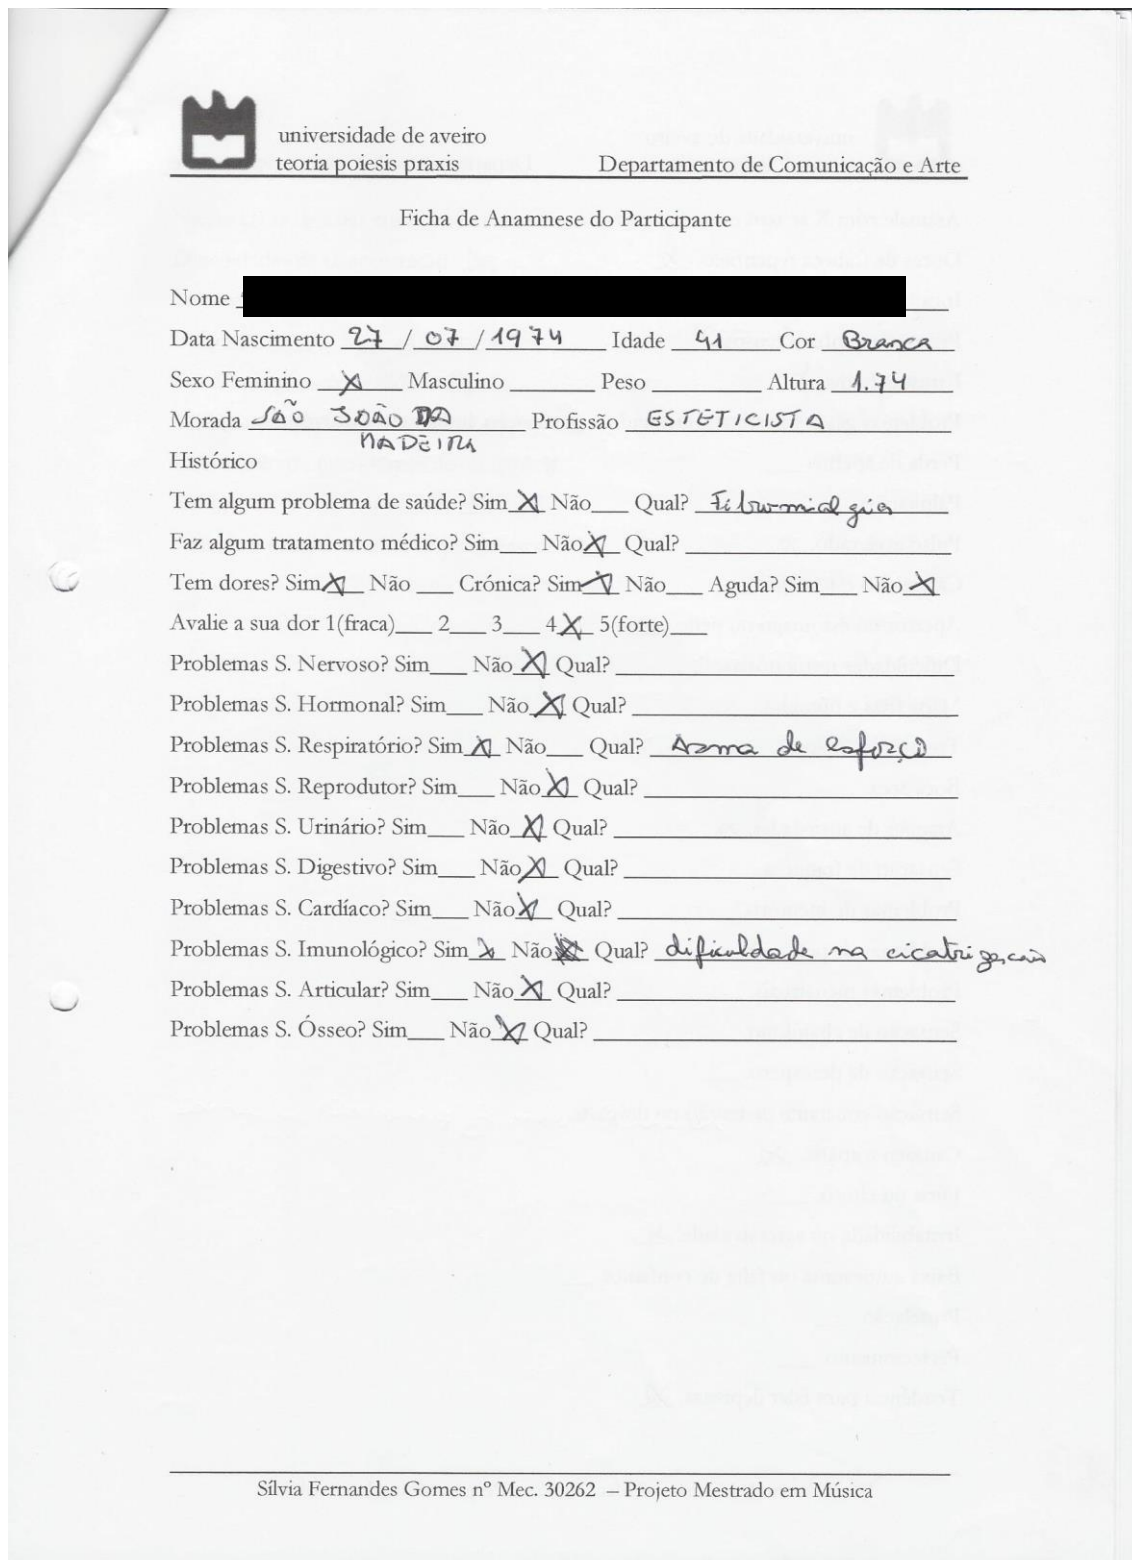 universidade de aveiro
teoria poiesis praxis Departamento de Comunicação e Arte
Ficha de Anamnese do Participante
Nome
Data Nascimento 27 / 07 / 1974 Idade 41 Cor Branca
Sexo Feminino X Masculino ___ Peso ___ Altura 1.74
Morada SÃO JOÃO DA Profissão ESTETICISTA
MADEIRA
Histórico
Tem algum problema de saúde? Sim X Não___ Qual? Fibromialgia
Faz algum tratamento médico? Sim___ Não X Qual? ___
Tem dores? Sim X Não ___ Crónica? Sim X Não___ Aguda? Sim___ Não X
Avalie a sua dor 1(fraca)___ 2___ 3___ 4 X 5(forte)___
Problemas S. Nervoso? Sim___ Não X Qual? ___
Problemas S. Hormonal? Sim___ Não X Qual? ___
Problemas S. Respiratório? Sim X Não___ Qual? Asma de esforço
Problemas S. Reprodutor? Sim___ Não X Qual? ___
Problemas S. Urinário? Sim___ Não X Qual? ___
Problemas S. Digestivo? Sim___ Não X Qual? ___
Problemas S. Cardíaco? Sim___ Não X Qual? ___
Problemas S. Imunológico? Sim X Não X Qual? dificuldade na cicatrização
Problemas S. Articular? Sim___ Não X Qual? ___
Problemas S. Ósseo? Sim___ Não X Qual? ___
Sílvia Fernandes Gomes nº Mec. 30262 – Projeto Mestrado em Música